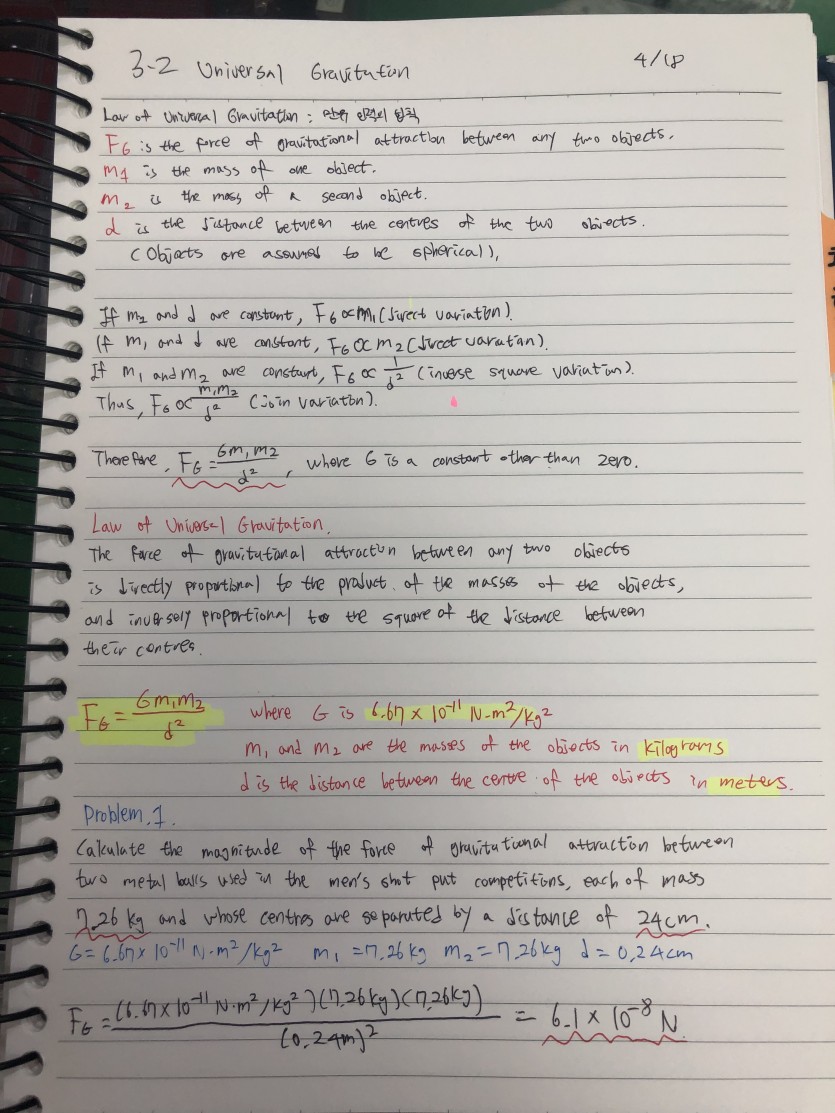 3-2 Universal Gravitation
4/18
Law of Universal Gravitation : 만유 인력의 법칙
FG is the force of gravitational attraction between any two objects.
m1 is the mass of one object.
m2 is the mass of a second object.
d is the distance between the centres of the two objects.
(Objects are assumed to be spherical),
If m2 and d are constant, FG ∝ m1 (direct variation).
If m1 and d are constant, FG ∝ m2 (direct variation).
If m1 and m2 are constant, FG ∝ 1/d² (inverse square variation).
Thus, FG ∝ m1m2/d² (join variation).
Therefore, FG = Gm1m2/d², where G is a constant other than zero.
Law of Universal Gravitation.
The force of gravitational attraction between any two objects
is directly proportional to the product of the masses of the objects,
and inversely proportional to the square of the distance between
their centres.
FG = Gm1m2/d² where G is 6.67 × 10⁻¹¹ N·m²/kg²
m1 and m2 are the masses of the objects in kilograms
d is the distance between the centre of the objects in meters.
Problem.1.
Calculate the magnitude of the force of gravitational attraction between
two metal balls used in the men's shot put competitions, each of mass
7.26 kg and whose centres are separated by a distance of 24cm.
G = 6.67 × 10⁻¹¹ N·m²/kg² m1 = 7.26 kg m2 = 7.26 kg d = 0.24cm
FG = (6.67 × 10⁻¹¹ N·m²/kg²)(7.26kg)(7.26kg)/(0.24m)² = 6.1 × 10⁻⁸ N